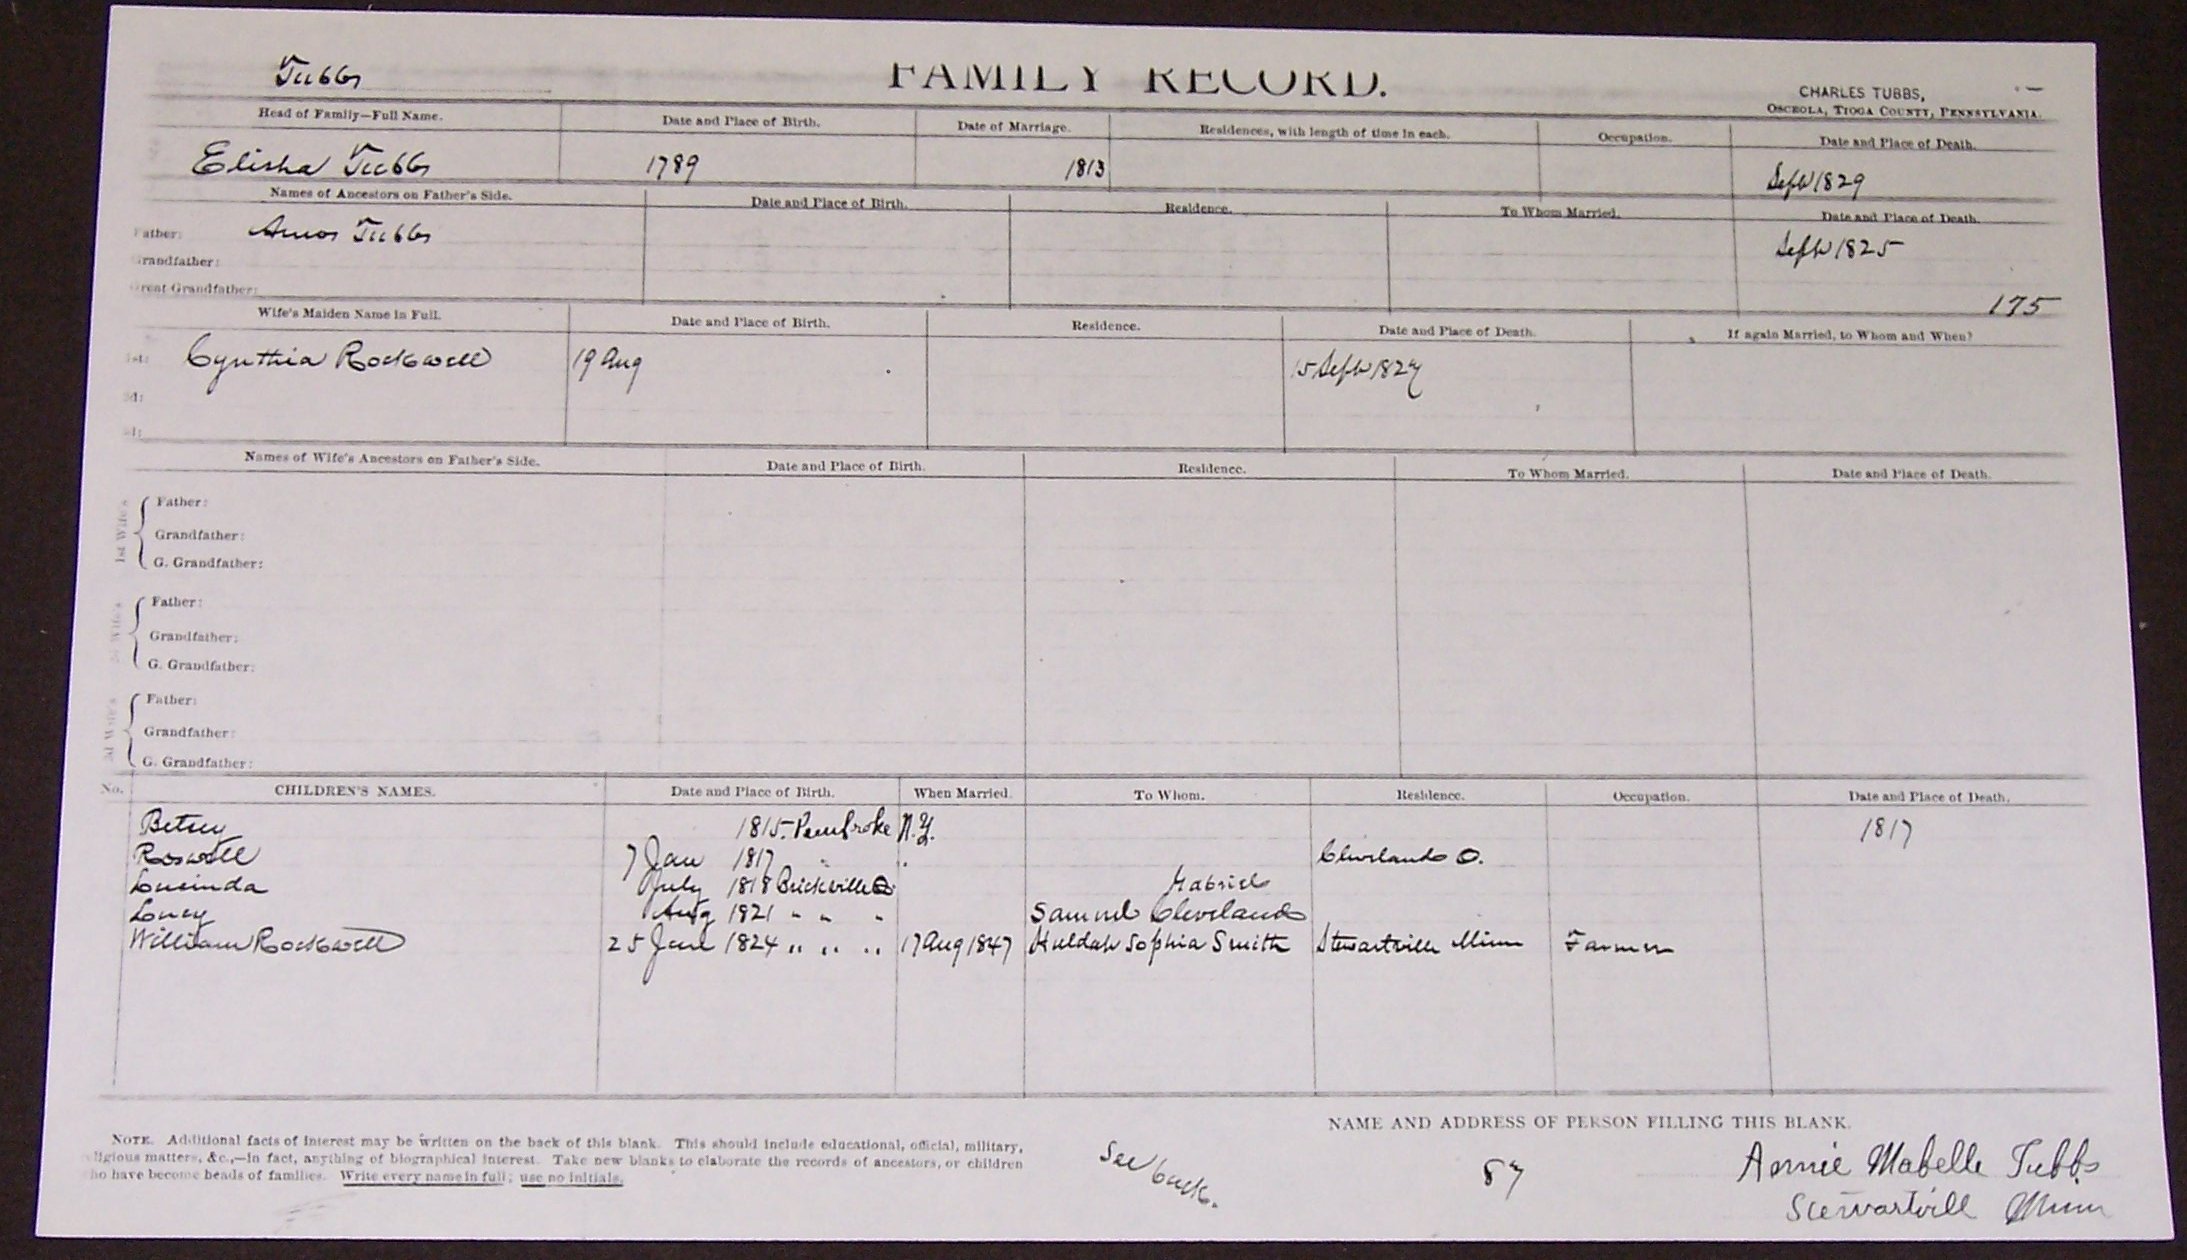 Tubbs
FAMILY RECORD.
CHARLES TUBBS,
OSCEOLA, TIOGA COUNTY, PENNSYLVANIA.
Head of Family—Full Name. Date and Place of Birth. Date of Marriage. Residences, with length of time in each. Occupation. Date and Place of Death.
Elisha Tubbs 1789 1813 Sept 1829
Names of Ancestors on Father's Side. Date and Place of Birth. Residence. To Whom Married. Date and Place of Death.
Father: Amos Tubbs Sept 1825
Grandfather:
Great Grandfather: 175
Wife's Maiden Name in Full. Date and Place of Birth. Residence. Date and Place of Death. If again Married, to Whom and When?
1st: Cynthia Rockwell 19 Aug 15 Sept 1827
2d:
3d:
Names of Wife's Ancestors on Father's Side. Date and Place of Birth. Residence. To Whom Married. Date and Place of Death.
1st Wife's
Father:
Grandfather:
G. Grandfather:
2d Wife's
Father:
Grandfather:
G. Grandfather:
3d Wife's
Father:
Grandfather:
G. Grandfather:
No. CHILDREN'S NAMES. Date and Place of Birth. When Married. To Whom. Residence. Occupation. Date and Place of Death.
Betsey 1815. Pembroke N.Y. 1817
Roswell 7 Jan 1817 " " Cleveland O.
Lucinda July 1818 Brickville O. Gabriel
Lucy Aug 1821 " " " Samuel Cleveland
William Rockwell 25 Jan 1824 " " " 17 Aug 1847 Huldah Sophia Smith Stewartville Minn Farmer
NAME AND ADDRESS OF PERSON FILLING THIS BLANK.
NOTE. Additional facts of interest may be written on the back of this blank. This should include educational, official, military,
religious matters, &c.,—in fact, anything of biographical interest. Take new blanks to elaborate the records of ancestors, or children
who have become heads of families. Write every name in full; use no initials.
See back.
87
Annie Mabelle Tubbs
Stewartvill Minn